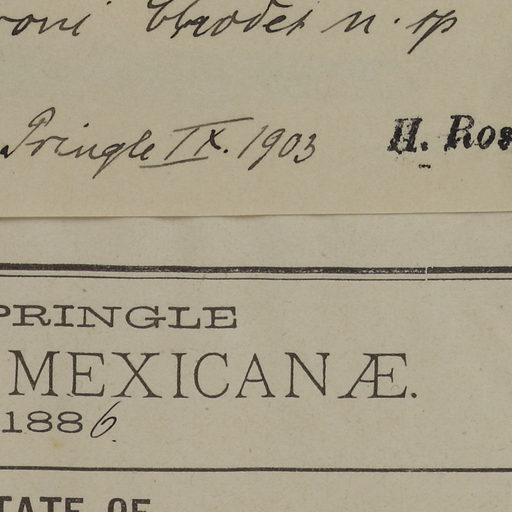 n. sp
Pringle IX. 1903 H. Ros
PRINGLE
MEXICANÆ.
1886.
TATE OF